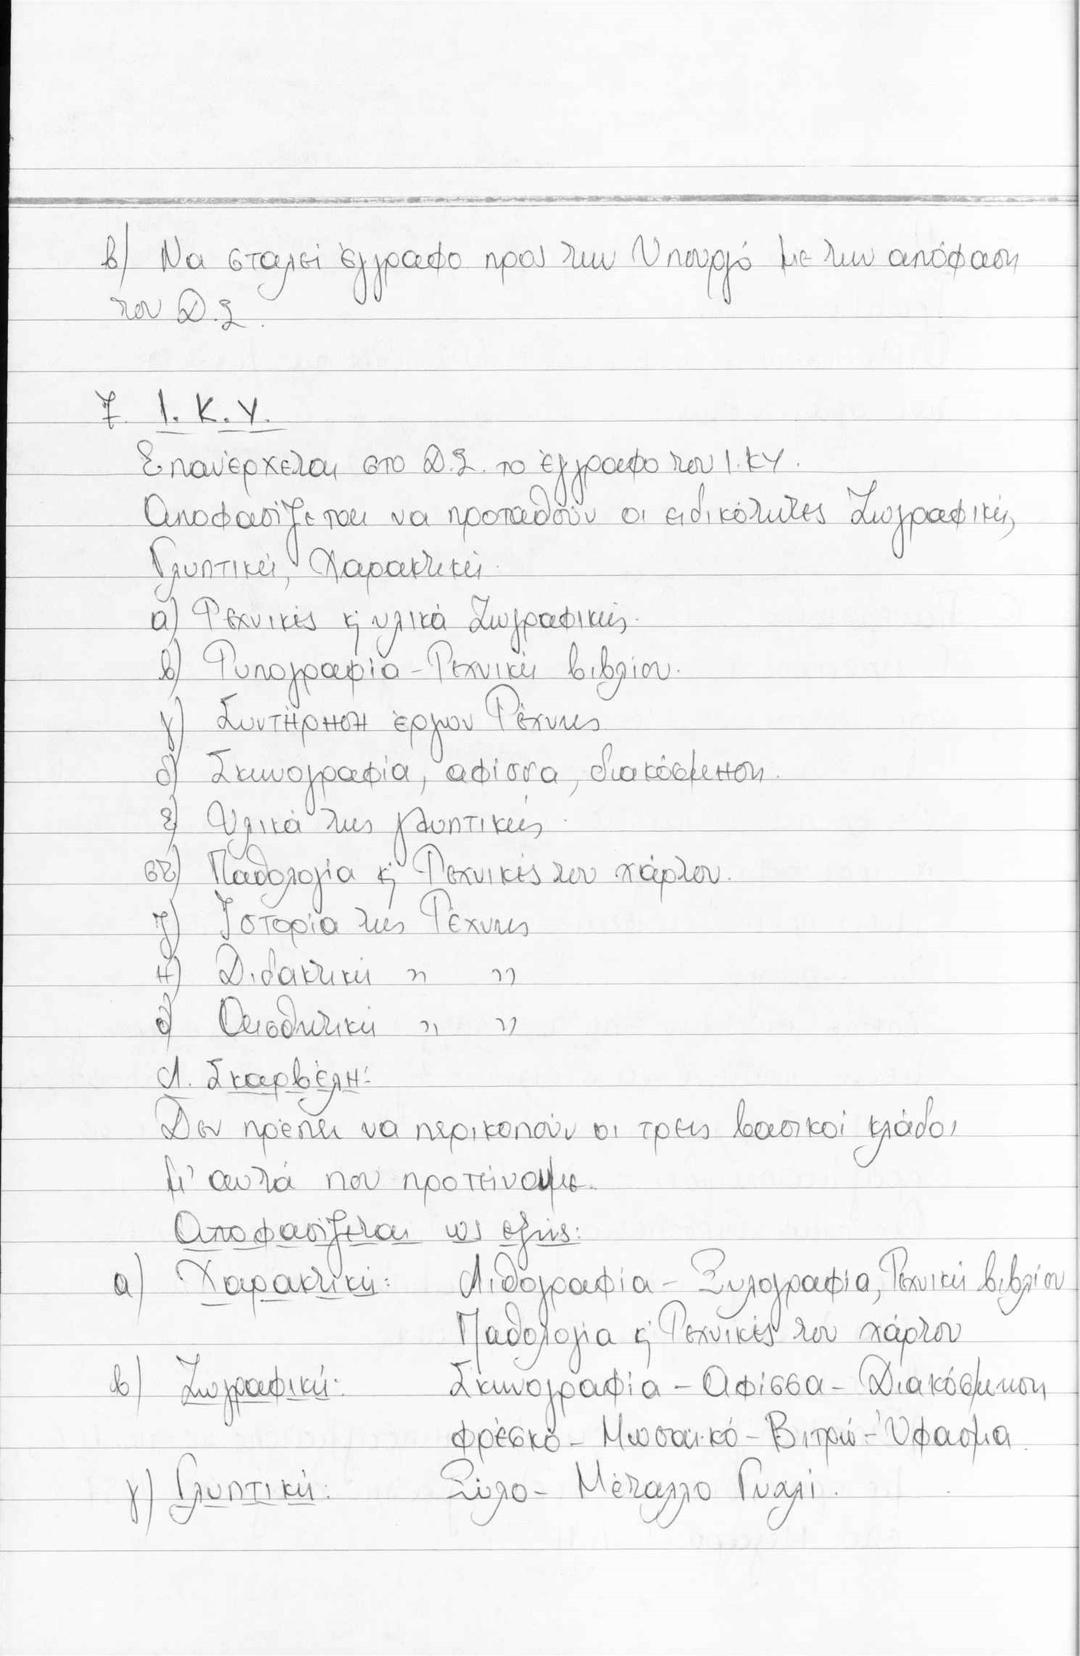 β) Να σταλεί έγγραφο προς τον Υπουργό με την απόφαση
του Δ.Σ.
7. Ι.Κ.Υ.
Επανέρχεται στο Δ.Σ. το έγγραφο του Ι.ΚΥ.
Αποφασίζεται να προταθούν οι ειδικότητες Ζωγραφική,
Γλυπτική, Χαρακτική.
α) Τεχνικές κ' υλικά Ζωγραφικής.
β) Τυπογραφία - Τεχνική βιβλίου.
γ) Συντήρηση έργων Τέχνης
δ) Σκηνογραφία, αφίσσα, διακόσμηση.
ε) Υλικά της γλυπτικής.
στ) Παθολογία κ' Τεχνικές του χάρτου.
ζ) Ιστορία της Τέχνης
η) Διδακτική " "
θ) Αισθητική " "
Λ. Σκαρβέλη:
Δεν πρέπει να περικοπούν οι τρεις βασικοί κλάδοι
μ' αυτά που προτείναμε.
Αποφασίζεται ως εξής:
α) Χαρακτική: Λιθογραφία - Ξυλογραφία, Τεχνική βιβλίου
Παθολογία κ' Τεχνικές του χάρτου
β) Ζωγραφική: Σκηνογραφία - Αφίσσα - Διακόσμηση
φρέσκο - Μωσαικό - Βιτρώ - Ύφασμα.
γ) Γλυπτική: Ξύλο - Μέταλλο Γυαλί.